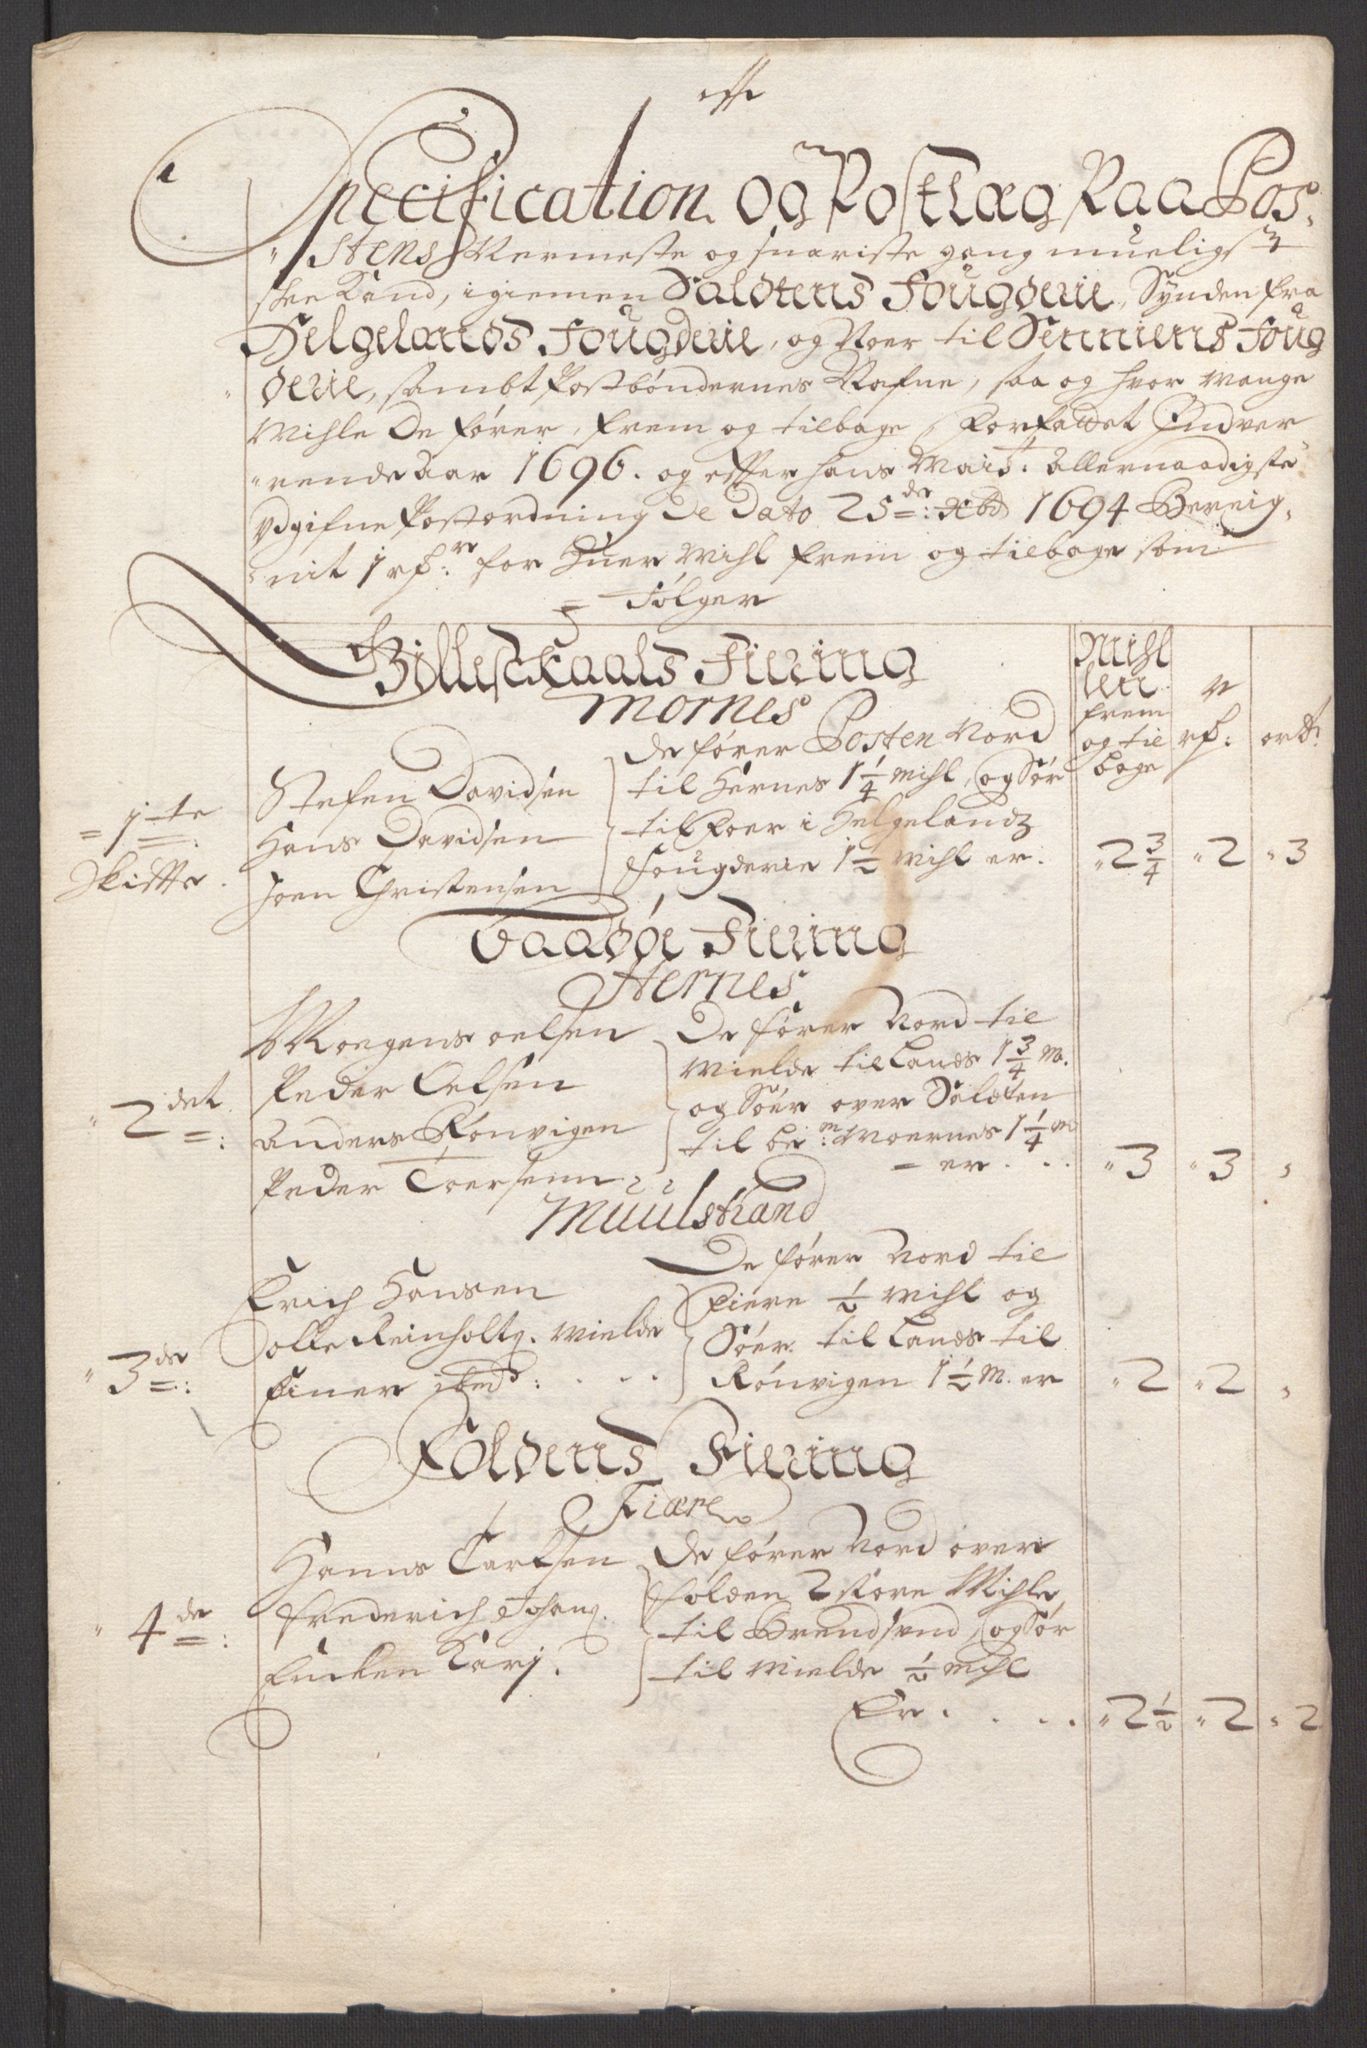 Specification og Postlæg Paa Pos-
stens Nermeste og snariste gang mueligst
skee Kand, igiemen Saldtens Fougderie, Synden fra
Helgelands Fougderie, og Noer til Senniens Foug
derie, sambt Postbøndernes Nafne, saa og hvor mange
Mihle De fører, frem og tilbage, forfattet Indver
rende Aar 1696. og effter hans Maists: Allernaadigste
Udgifne Postordning de Dato 25de: xbr 1694 Bereig-
nit 1 rdr: for Huer Mihl frem og tilbage som
Følger
Gilleskaals Fiering
Mornes
Mihl
len
frem
og til
bage
rdr:
ortt:
1te
Skiffte.
Steffen Davidsen
Hans Davidsen
Joen Christensen
De fører Posten Nord
til Hernes 1 1/4 Mihl, og Sør
til Roer i Helgelands
Fougderie 1 1/2 Mihl er.
2 3/4 2 3
Baadøe Fiering
Hernes
2det
Mogens Oelsen
Peder Oelsen
Anders Rønvigen
Peder Toersenn
De fører Nord til
Mielde til Lands 1 3/4 M.
og Søer over Saldten
til Mornes 1 1/4 M
er . . .
3 3
Muulstrand
3de:
Erich Hansen
Olle Reinholtz. Mielde
Einer ibed: . . . .
De fører Nord til
Fiere 1/2 Mihl og
Søer til Lands til
Rønvigen 1 1/2 M. er
2 2
Foldens Fiering
Fiære
4de:
Hanns Carlsen
Frederich Johans.
De fører Nord over
Folden 2 store Mihle
til Brendsund, og Sør
til Mielde 1/2 Mihl
Er . . . .
2 1/2 2 2